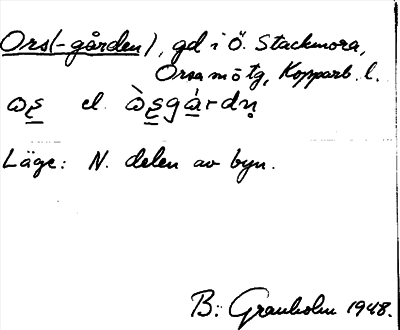 Ors(-gården), gd i Ö. Stackmora,
Orsa m o tg, Kopparb. l.
el.
Läge: N. delen av byn.
B: Granholm 1948.